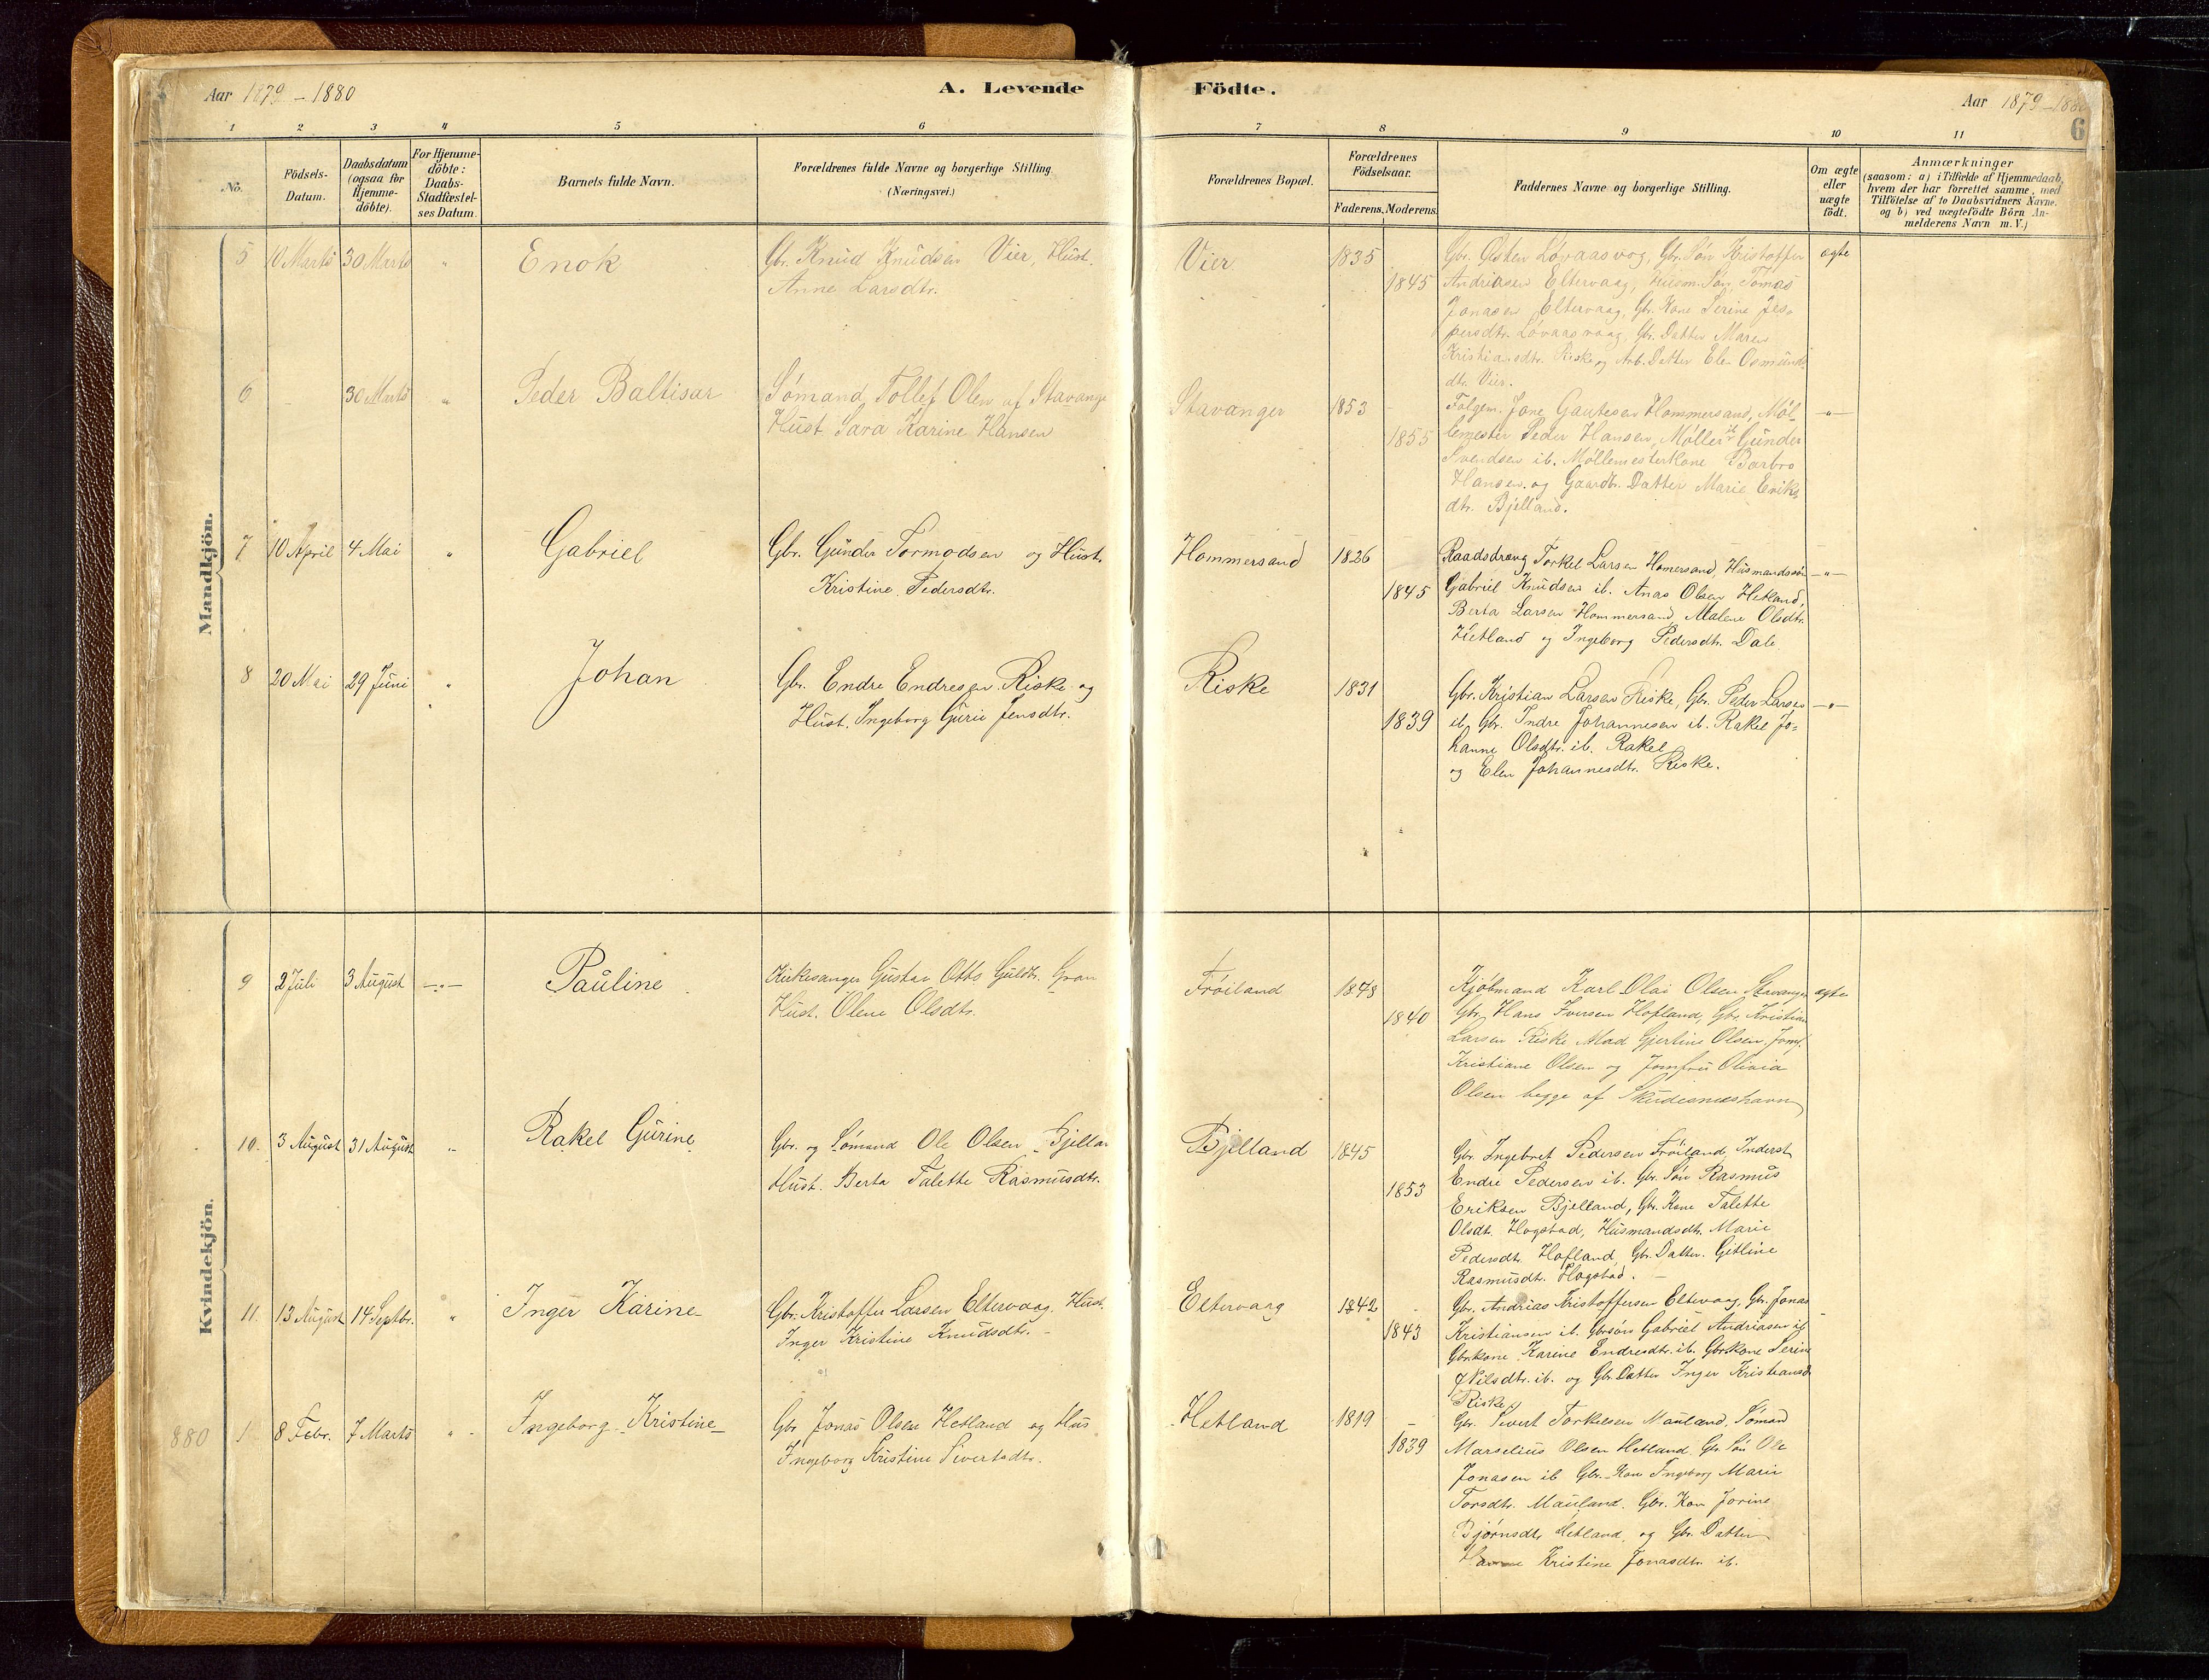 Aar 1879-1880
A. Levende
Födte.
Aar 1879-1880
6
1 2 3 4 5 6 7 8 9 10 11
No.
Födsels-
Datum.
Daabsdatum
(ogsaa for
Hjemme-
döbte).
For Hjemme-
döbte:
Daabs-
Stadfæstel-
ses Datum.
Barnets fulde Navn.
Forældrenes fulde Navne og borgerlige Stilling
(Næringsvei.)
Forældrenes Bopæl.
Forældrenes
Födselsaar.
Faderens. Moderens.
Faddernes Navne og borgerlige Stilling.
Om ægte
eller
uægte
födt.
Anmærkninger
(saasom: a) i Tilfælde af Hjemmedaab,
hvem der har forrettet samme, med
Tilföielse af to Daabsvidners Navne.
og b) ved uægtefödte Börn An-
melderens Navn m. V.)
Mandkjön.
5 10 Marts 30 Marts " Enok
Gbr. Knud Knudsen Vier, Hust.
Anne Larsdtr.
Vier 1835
1845
Gbr. Østen Løvaasvog, Gbr. Søn Kristoffer
Andriasen Eltervaag, Husm. Søn Tomas
Jonasen Eltervaag, Gbr. Kone Serine Jes-
persdtr. Løvaasvaag, Gbr. Datter Maren
Kristiansdtr. Riske og Arb. Datter Elen Osmunds-
dtr. Vier.
ægte
6 - 30 Marts " Peder Baltisar
Sømand Tollef Olsen af Stavange
Hust Sara Karine Hansen
Stavanger 1853
1855
Folgem. Jone Gautesen Hommersand, Møl-
lemester Peder Hansen, Møller Gunder
Svendsen ib. Møllemesterkone Barbro
Hansen og Gaardbr. Datter Marie Eriks-
dtr. Bjelland.
-"-
7 10 April 4 Mai " Gabriel
Gbr. Gunder Tormodsen og Hust.
Kristine Pedersdtr.
Hommersand 1826
1845
Raadsdreng Torkel Larsen Homersand, Husmandssøn
Gabriel Knudsen ib. Anas Olsen Hetland,
Berta Larsen Hommersand, Malene Olsdtr.
Hetland og Ingeborg Pedersdtr. Dale
-"-
8 20 Mai 29 Juni " Johan
Gbr. Endre Endresen Riske og
Hust. Ingeborg Gurie Jensdtr.
Riske 1831
1839
Gbr. Kristian Larsen Riske, Gbr. Peder Larsen
ib, Gbr. Indre Johannesen ib. Rakel Jo-
hanne Olsdtr. ib. Rakel
og Elen Johannesdtr. Riske.
-"-
Kvindekjön.
9 2 Juli 3 August -"- Pauline
Kirkesanger Gustav Otto Guldbr. Gran
Hust. Olene Olsdtr.
Frøiland 1848
1840
Kjøbmand Karl Olai Olsen Stavanger
Gbr. Hans Iversen Hofland, Gbr. Kristian
Larsen Riske, Mad Gjertine Olsen, Jomf.
Kristiane Olsen og Jomfru Olivia
Olsen begge af Skudesneshavn
ægte
10. 3 August 31 August " Rakel Gurine
Gbr. og Sømand Ole Olsen Bjellan
Hust. Berta Talette Rasmusdtr.
Bjelland 1845
1853
Gbr. Ingebret Pedersen Frøiland, Inderst
Endre Pedersen ib. Gbr. Søn Rasmus
Eriksen Bjelland, Gbr. Kone Talette
Olsdt. Hogstad, Husmandsdtr. Marie
Pedersdtr. Hofland, Gbr. Datter Gitline
Rasmusdtr. Hogstad.
11. 13 August 14 Septbr. " Inger Karine
Gbr. Kristoffer Larsen Eltervaag. Hust.
Inger Kristine Knudsdtr.
Eltervaag 1842
1843
Gbr. Andrias Kristoffersen Eltevaag, Gbr. Jonas
Kristiansen ib. Gbrsøn Gabriel Andriasen ib
Gbrkone Karine Endresdtr. ib. Gbrkone Serine
Nilsdtr. ib. og Gbr. Datter Inger Kristiansd
Riske
880 1 8 Febr. 7 Marts " Ingeborg Kristine
Gbr Jonas Olsen Hetland og Hus
Ingeborg Kristine Sivertsdtr.
Hetland 1819
1839
Gbr. Sivert Torkelsen Mauland, Sømand
Marselius Olsen Hetland Gbr Søn Ole
Jonasen ib Gbr. Kone Ingeborg Marie
Torsdtr. Mauland. Gbr. Kone Jorine
Bjørnsdtr. Hetland, og Gbr. Datter
Hanne Kristine Jonasdtr. ib.